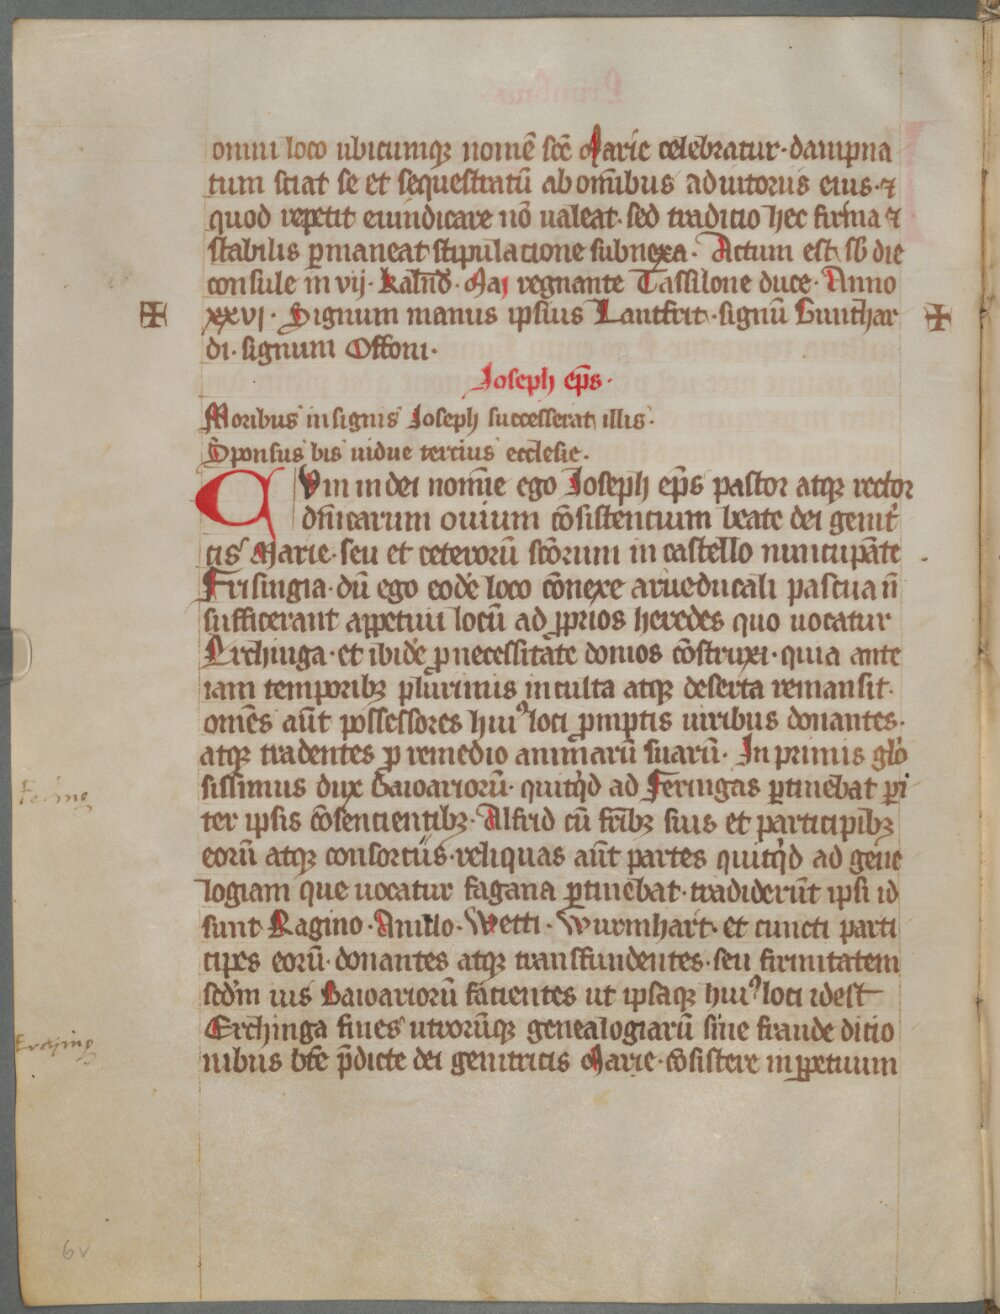 omni loco ubicumqꝫ nomē scē Marie celebratur· dampna
tum sciat se et sequestratū ab omībus aduitoriis eius· ⁊
quod repetit euindicare nō ualeat· sed tradicio hec firma ⁊
stabilis ꝑmaneat stipulacione subnexa· Actum est sb die
consule in vij· kalnd̄· Maj regnante Tassilone duce· Anno
xxvj· Signum manus ipsius Lantfrit· signū Gunthar
di· signum Offoni·
Joseph ep̄s·
Moribus insignis Joseph successerat illis·
Sponsus bis uidue tercius ecclesie·
CVm in dei nomīe ego Joseph ep̄s pastor atqꝫ rector
dn̄icarum ouium cōsistencium beate dei genit
cis Marie· seu et ceterorū scōrum in castello nuncupāte
Frisingia· dū ego eodē loco cōnexe arue ducali pascua n̄
sufficerant appetiui locū ad ꝓprios heredes quo uocatur
Erchinga· et ibidē ꝓ necessitāte domos cōstruxi· quia ante
iam temporibꝫ plurimis inculta atqꝫ deserta remansit·
omēs aūt possessores huiꝰ loci ꝓmptis uiribus donantes·
atqꝫ tradentes ꝓ remedio animarū suarū· In primis glo
sissimus dux Baioariorū· quitqd ad Feringas ꝑtinebat pari
ter ipsis cōsencientibꝫ· Alfrid cū fr̄ibꝫ suis et participibꝫ
eorū atqꝫ consorciis· reliquas aūt partes quitqd ad gene
logiam que uocatur fagana ꝑtinebat· tradiderūt ipsi id
sunt Ragino· Anulo· Wetti· Wurmhart· et cuncti parti
cipes eorū· donantes atqꝫ transfundentes· seu firmitatem
scdm ius Baioariorū facientes ut ipsaqꝫ huiꝰ loci idest
Erchinga fines utrorūqꝫ genealogiarū siue fraude dicio
nibus bt̄e p̄dicte dei genitricis Marie· cōsistere in ꝑpetuum
Fering
Erching
6v